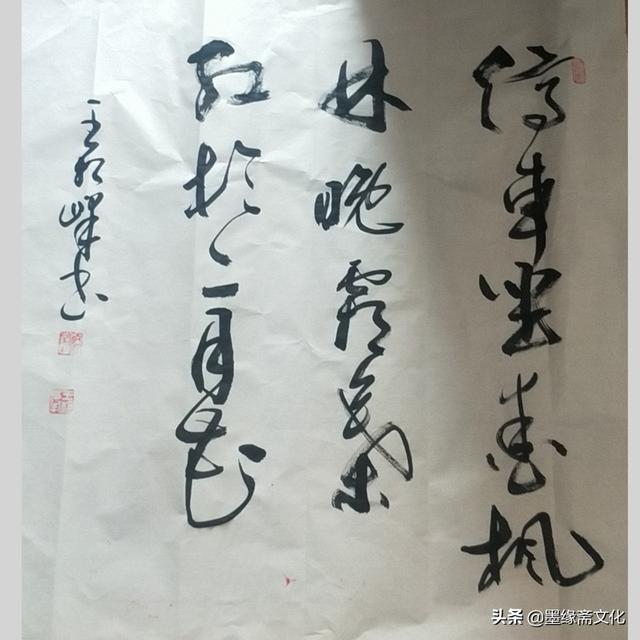 停车坐爱枫
林晚霜叶
红於二月花
头条 @墨缘斋文化